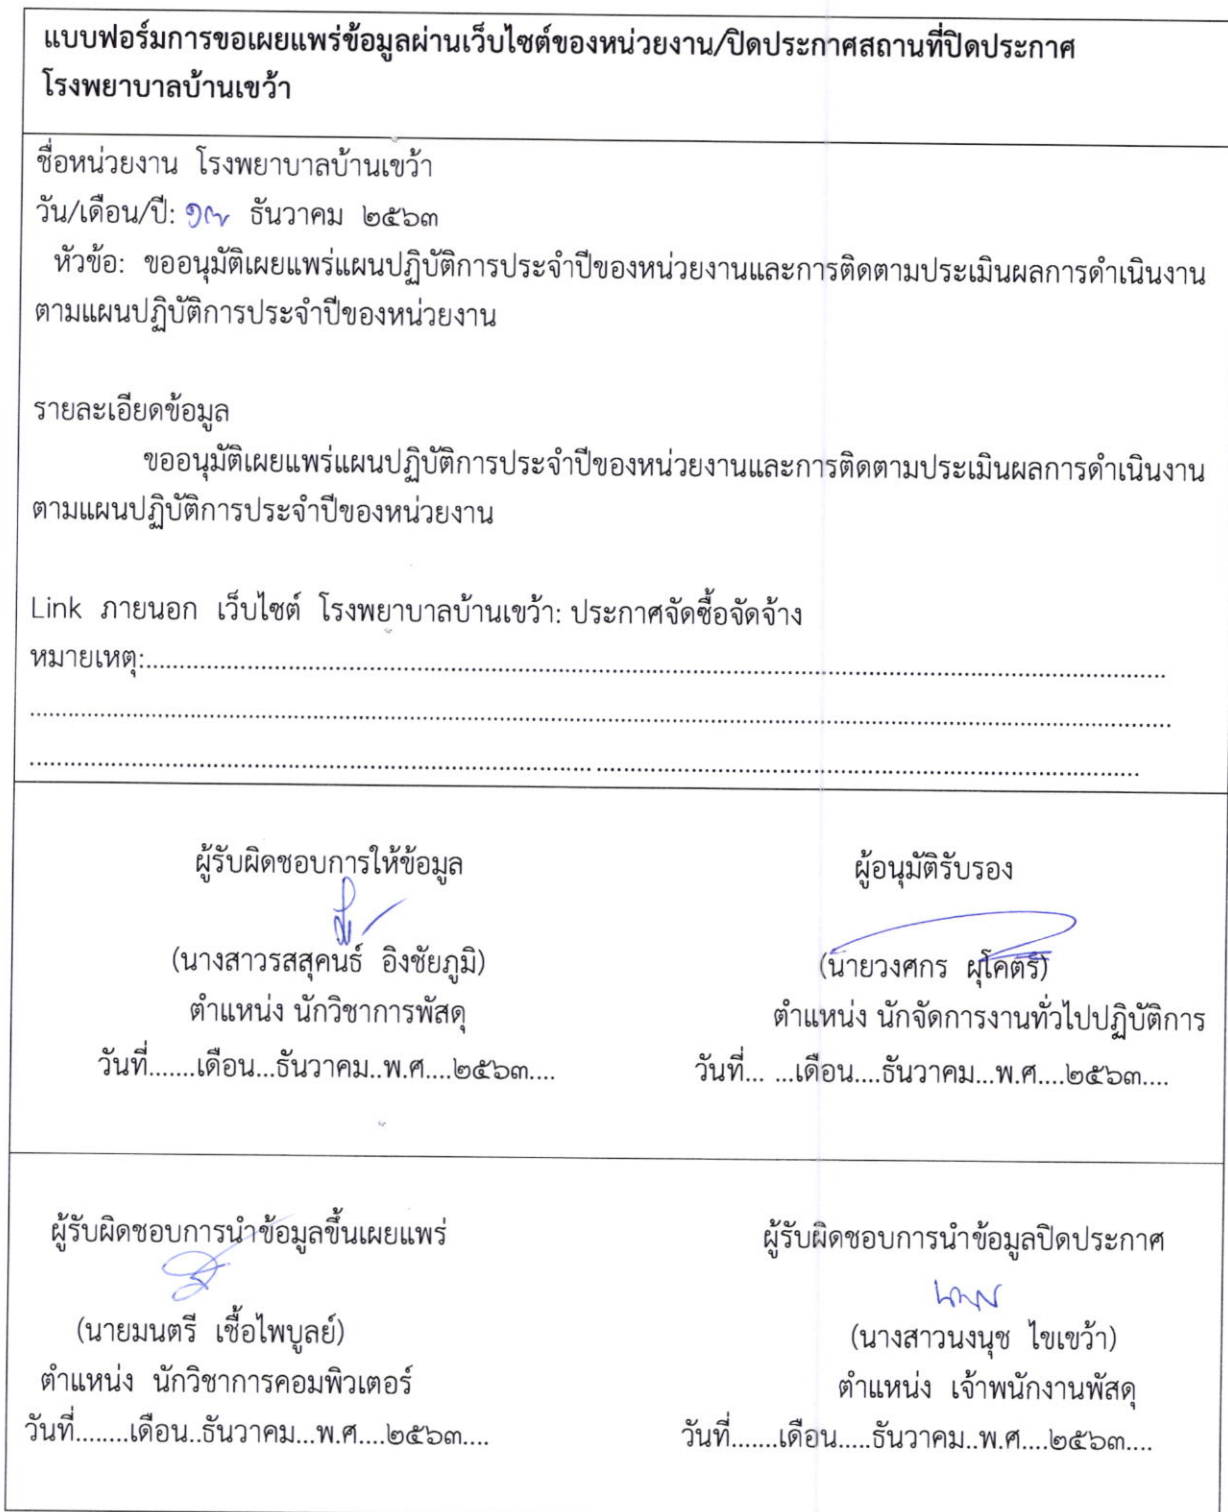 แบบฟอร์มการขอเผยแพร่ข้อมูลผ่านเว็บไซต์ของหน่วยงาน/ปิดประกาศสถานที่ปิดประกาศ
โรงพยาบาลบ้านเขว้า
ชื่อหน่วยงาน โรงพยาบาลบ้านเขว้า
วัน/เดือน/ปี: ธันวาคม ๒๕๖๓
หัวข้อ: ขออนุมัติเผยแพร่แผนปฏิบัติการประจำปีของหน่วยงานและการติดตามประเมินผลการดำเนินงาน
ตามแผนปฏิบัติการประจำปีของหน่วยงาน
รายละเอียดข้อมูล
ขออนุมัติเผยแพร่แผนปฏิบัติการประจำปีของหน่วยงานและการติดตามประเมินผลการดำเนินงาน
ตามแผนปฏิบัติการประจำปีของหน่วยงาน
Link ภายนอก เว็บไซต์ โรงพยาบาลบ้านเขว้า: ประกาศจัดซื้อจัดจ้าง
หมายเหตุ:
ผู้รับผิดชอบการให้ข้อมูล
(นางสาวรสสุคนธ์ อิงชัยภูมิ)
ตำแหน่ง นักวิชาการพัสดุ
วันที่.......เดือน...ธันวาคม..พ.ศ....๒๕๖๓....
ผู้อนุมัติรับรอง
(นายวงศกร ผุโคตรี)
ตำแหน่ง นักจัดการงานทั่วไปปฏิบัติการ
วันที่... ...เดือน....ธันวาคม...พ.ศ....๒๕๖๓....
ผู้รับผิดชอบการนำข้อมูลขึ้นเผยแพร่
(นายมนตรี เชื้อไพบูลย์)
ตำแหน่ง นักวิชาการคอมพิวเตอร์
วันที่........เดือน..ธันวาคม...พ.ศ....๒๕๖๓....
ผู้รับผิดชอบการนำข้อมูลปิดประกาศ
(นางสาวนงนุช ไขเขว้า)
ตำแหน่ง เจ้าพนักงานพัสดุ
วันที่.......เดือน.....ธันวาคม..พ.ศ....๒๕๖๓....